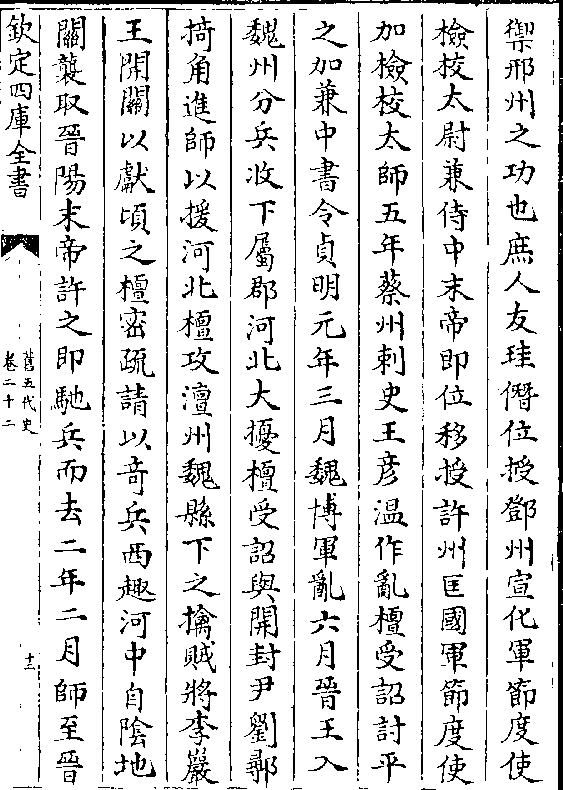 禦邢州之功也庶人友珪僭位授鄧州宣化軍節度使
檢校太尉兼侍中末帝即位移授許州匡國軍節度使
加檢校太師五年蔡州刺史王彦温作亂檀受詔討平
之加兼中書令貞明元年三月魏博軍亂六月晉王入
魏州分兵收下屬郡河北大擾檀受詔與開封尹劉鄩
掎角進師以援河北檀攻澶州魏縣下之擒賊將李巖
王開關以獻頃之檀密疏請以奇兵西趣河中自陰地
關襲取晉陽末帝許之即馳兵而去二年二月師至晉
欽定四庫全書
舊五代史
卷二十二
十三